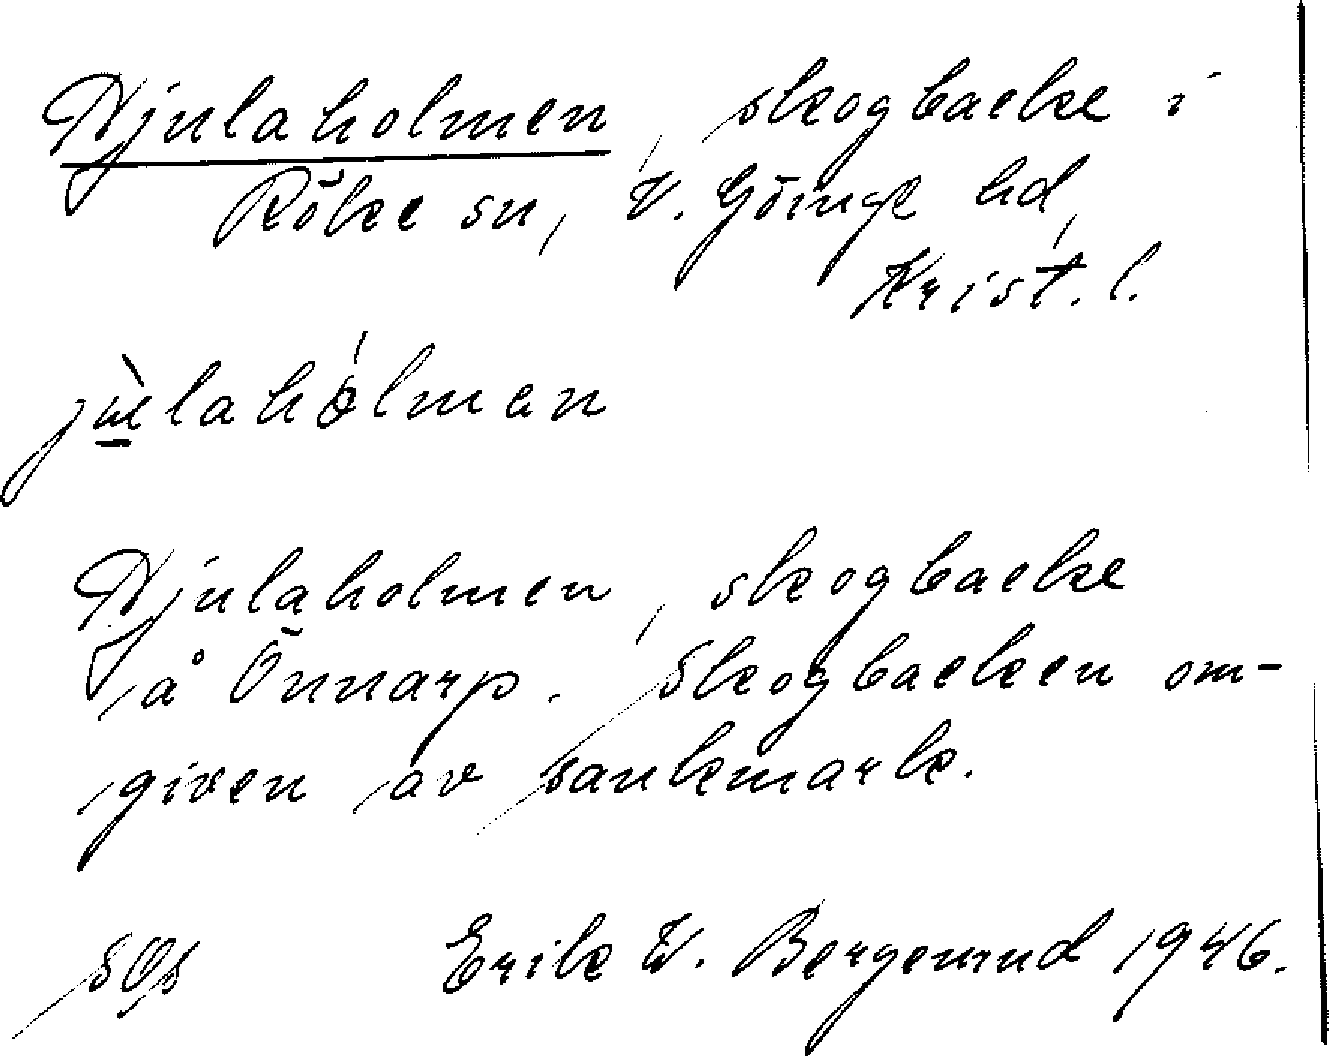 Hjulaholmen, skogbacke i
Röke sn, V. Göinge hd,
Krist. l.
jùlahólmen
Hjulaholmen, skogbacke
å Önnarp. Skogbacken om-
given av sankmark.
Erik W. Bergenrud 1946.